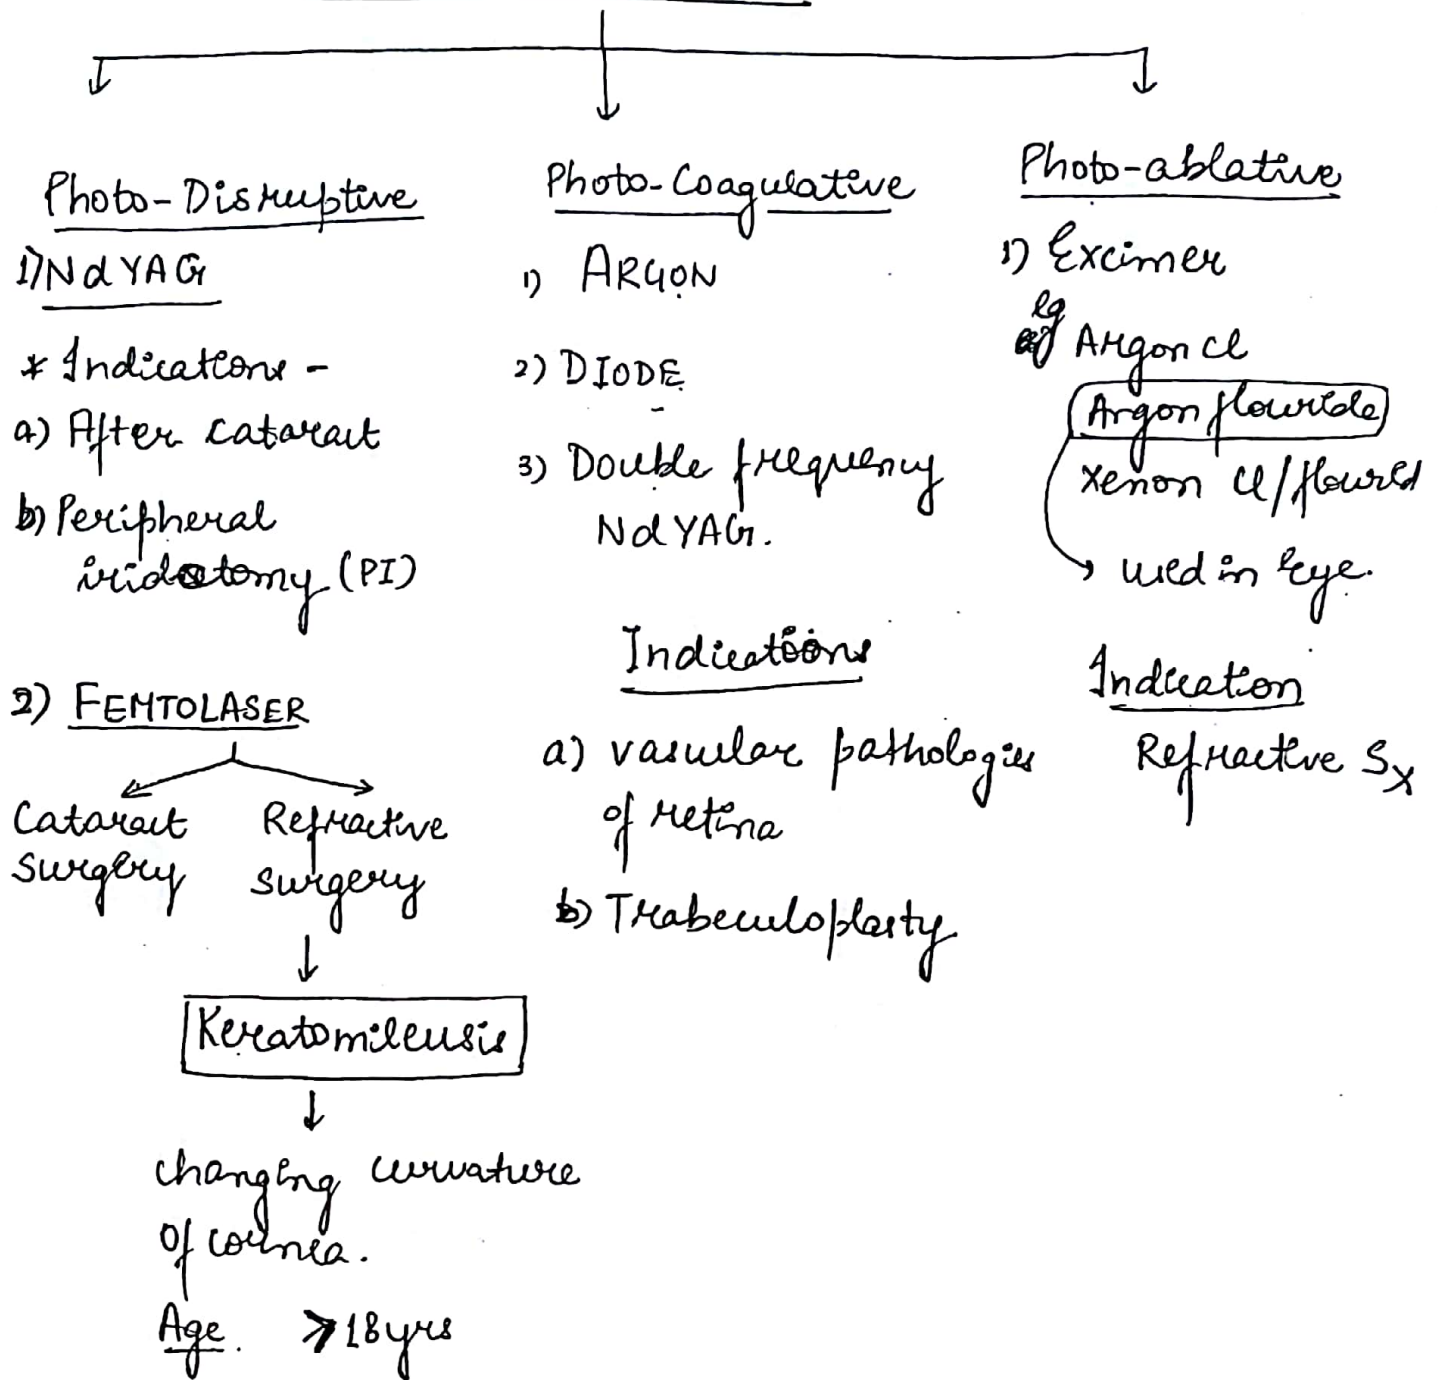 Photo-Disruptive
1) Nd YAG
* Indications -
a) After cataract
b) Peripheral
iridotomy (PI)
2) FEMTOLASER
Cataract
surgery
Refractive
surgery
Keratomileusis
changing curvature
of cornea.
Age. ≥18 yrs
Photo-Coagulative
1) ARGON
2) DIODE
3) Double frequency
Nd YAG.
Indications
a) vascular pathologies
of retina
b) Trabeculoplasty
Photo-ablative
1) Excimer
eg Argon cl
Argon flouride
Xenon cl/flourid
used in eye.
Indication
Refractive Sx